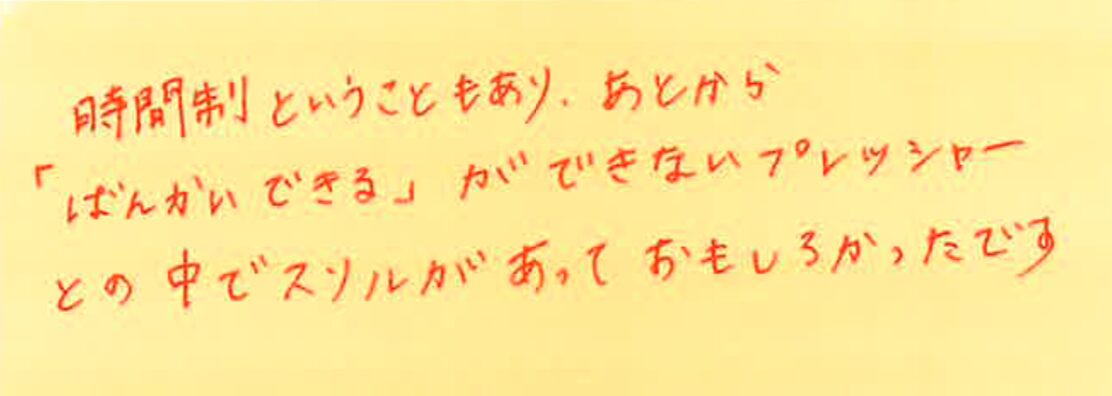 時間制ということもあり、あとから
「ばんかいできる」ができないプレッシャー
との中でスリルがあっておもしろかったです